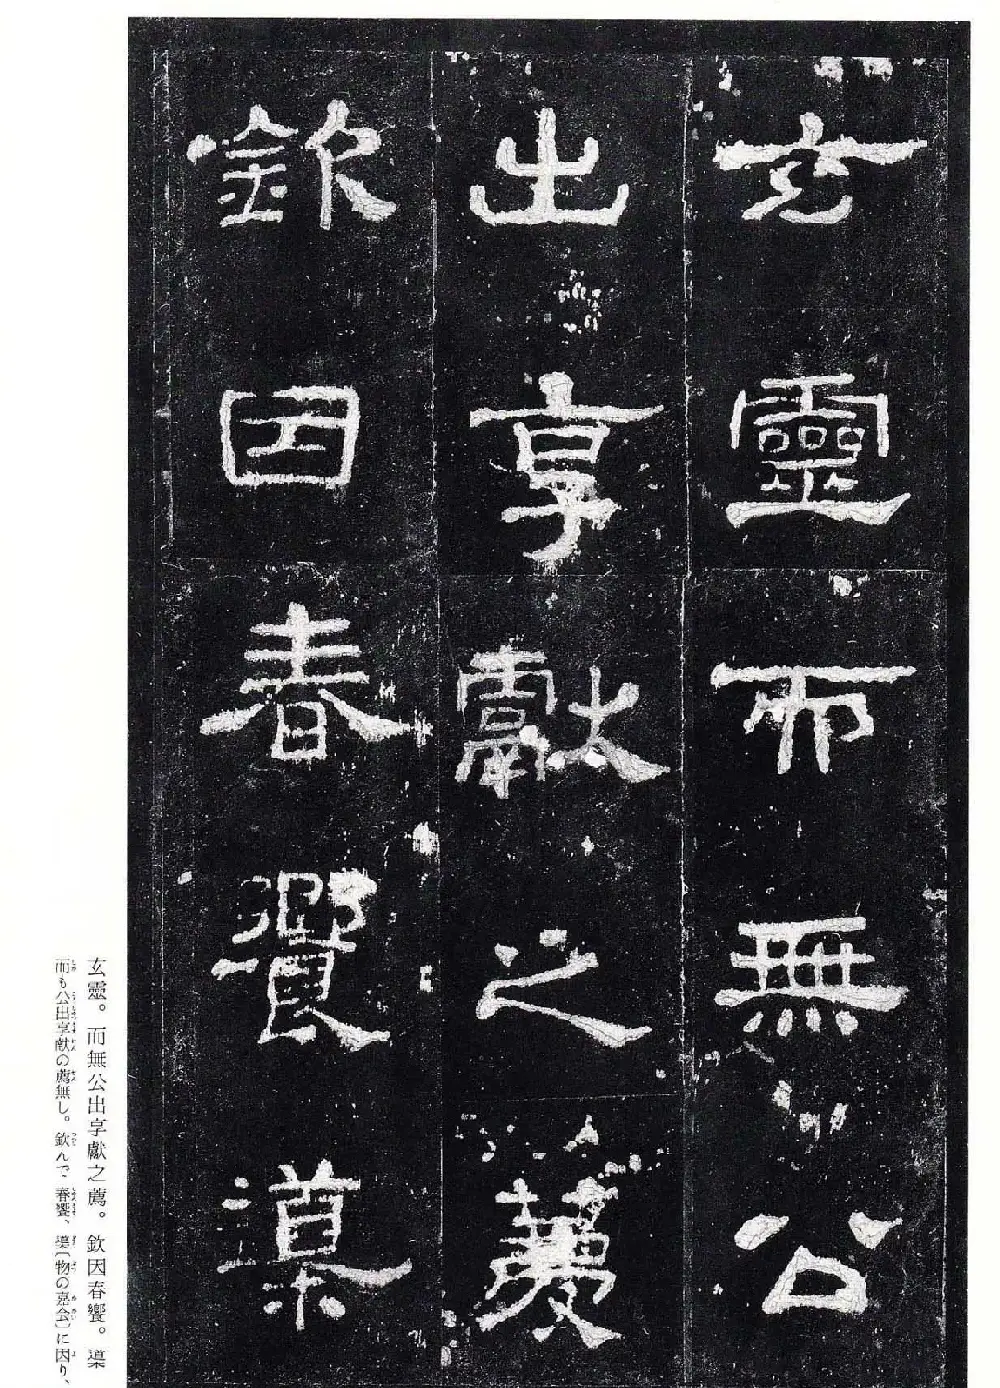 玄靈而無公
出享獻之薦
欽因春饗𨗉
玄靈。而無公出享獻之薦。欽因春饗。
而も公出享献の薦無し。欽んで春饗、(物の嘉会)に因り、